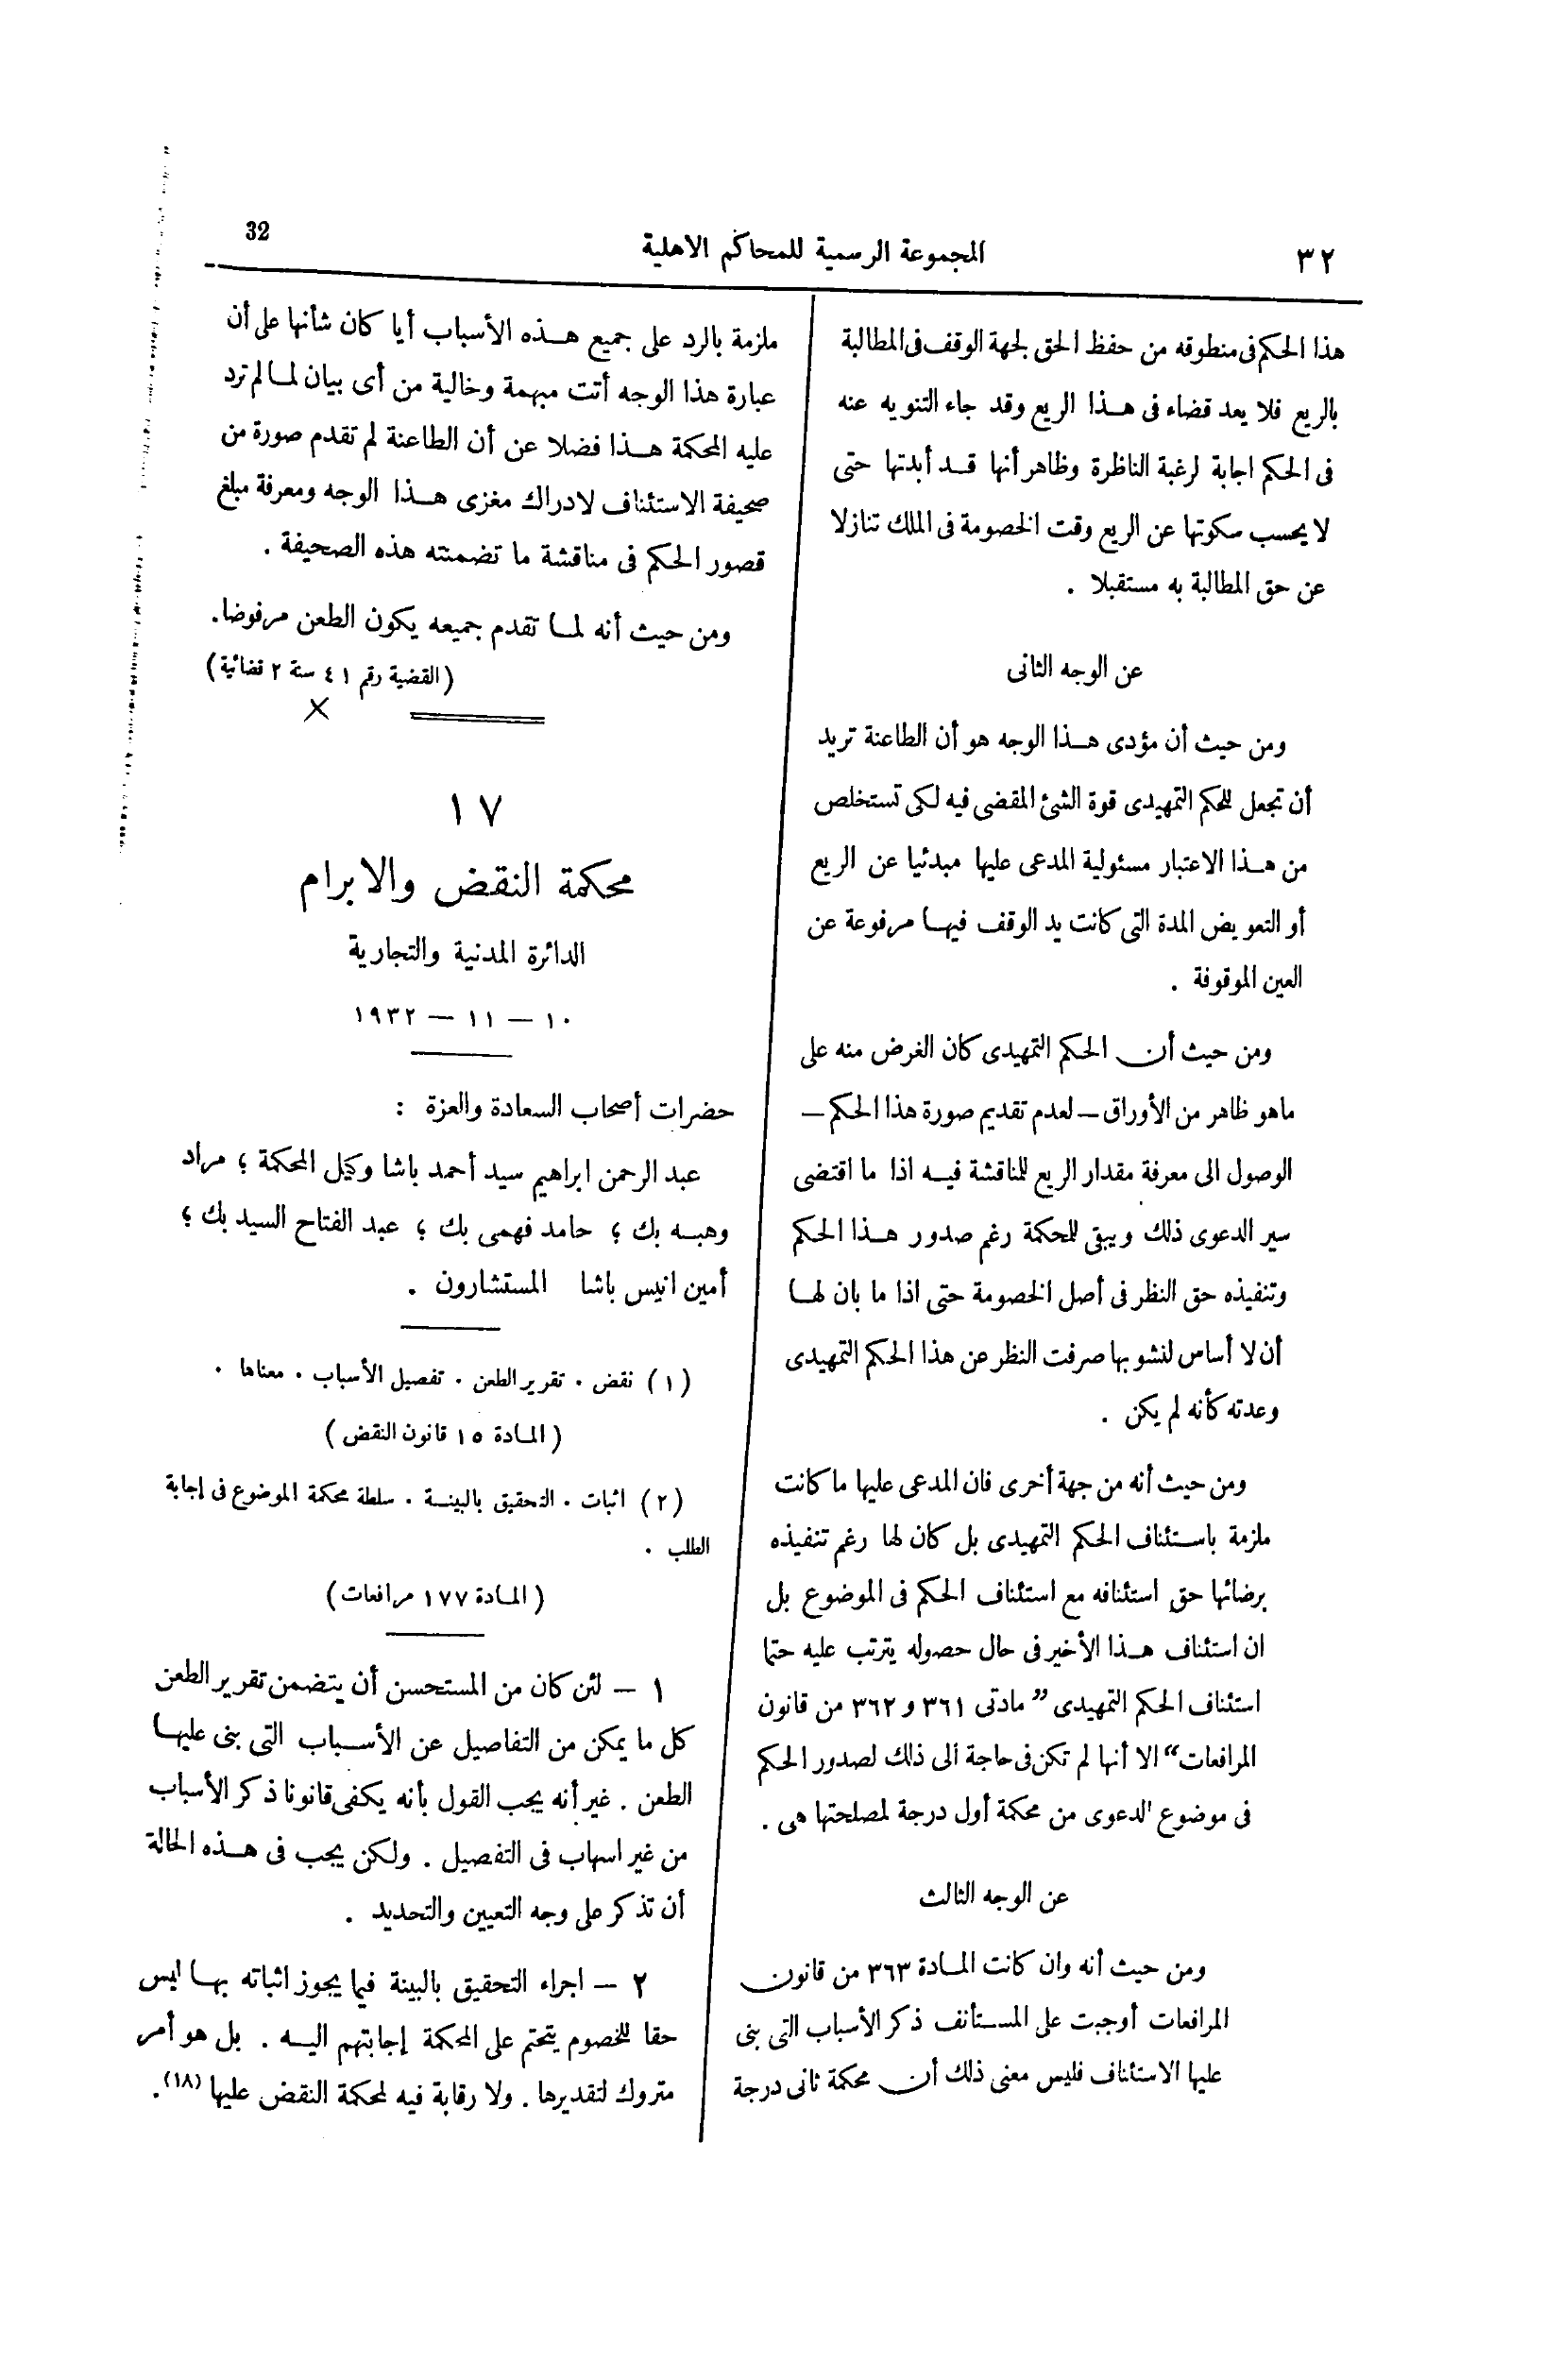 ٣٢
المجموعة الرسمية للمحاكم الاهلية
32
هذا الحكم فى منطوقه من حفظ الحق لجهة الوقف فى المطالبة
بالريع فلا يعد قضاء فى هذا الريع وقد جاء التنويه عنه
فى الحكم اجابة لرغبة الناظرة وظاهر أنها قد أبدتها حتى
لا يحسب سكوتها عن الريع وقت الخصومة فى الملك تنازلا
عن حق المطالبة به مستقبلا .
عن الوجه الثانى
ومن حيث أن مؤدى هذا الوجه هو أن الطاعنة تريد
أن تجعل للحكم التمهيدى قوة الشئ المقضى فيه لكى تستخلص
من هذا الاعتبار مسئولية المدعى عليها مبدئيا عن الريع
أو التعويض المدة التى كانت يد الوقف فيها مرفوعة عن
العين الموقوفة .
ومن حيث أن الحكم التمهيدى كان الغرض منه على
ماهو ظاهر من الأوراق – لعدم تقديم صورة هذا الحكم –
الوصول الى معرفة مقدار الريع للمناقشة فيه اذا ما اقتضى
سير الدعوى ذلك ويبقى للمحكمة رغم صدور هذا الحكم
وتنفيذه حق النظر فى أصل الخصومة حتى اذا ما بان لها
أن لا أساس لنشوبها صرفت النظر عن هذا الحكم التمهيدى
وعدته كأنه لم يكن .
ومن حيث أنه من جهة أخرى فان المدعى عليها ما كانت
ملزمة باستئناف الحكم التمهيدى بل كان لها رغم تنفيذه
برضائها حق استئنافه مع استئناف الحكم فى الموضوع بل
ان استئناف هذا الأخير فى حال حصوله يترتب عليه حتما
استئناف الحكم التمهيدى ”مادتى ٣٦١ و ٣٦٢ من قانون
المرافعات“ الا أنها لم تكن فى حاجة الى ذلك لصدور الحكم
فى موضوع الدعوى من محكمة أول درجة لمصلحتها هى .
عن الوجه الثالث
ومن حيث أنه وان كانت المادة ٣٦٣ من قانون
المرافعات أوجبت على المستأنف ذكر الأسباب التى بنى
عليها الاستئناف فليس معنى ذلك أن محكمة ثانى درجة
ملزمة بالرد على جميع هذه الأسباب أيا كان شأنها على أن
عبارة هذا الوجه أتت مبهمة وخالية من أى بيان لما لم ترد
عليه المحكمة هذا فضلا عن أن الطاعنة لم تقدم صورة من
صحيفة الاستئناف لادراك مغزى هذا الوجه ومعرفة مبلغ
قصور الحكم فى مناقشة ما تضمنته هذه الصحيفة .
ومن حيث أنه لما تقدم جميعه يكون الطعن مرفوضا.
(القضية رقم ٤١ سنة ٢ قضائية)
١٧
محكمة النقض والابرام
الدائرة المدنية والتجارية
١٠ – ١١ – ١٩٣٢
حضرات أصحاب السعادة والعزة :
عبد الرحمن ابراهيم سيد أحمد باشا وكيل المحكمة ؛ مراد
وهبه بك ؛ حامد فهمى بك ؛ عبد الفتاح السيد بك ؛
أمين انيس باشا المستشارون .
(١) نقض . تقرير الطعن . تفصيل الأسباب . معناها .
(المادة ١٥ قانون النقض)
(٢) اثبات . التحقيق بالبينة . سلطة محكمة الموضوع فى إجابة
الطلب .
(المادة ١٧٧ مرافعات)
١ – لئن كان من المستحسن أن يتضمن تقرير الطعن
كل ما يمكن من التفاصيل عن الأسباب التى بنى عليها
الطعن . غير أنه يجب القول بأنه يكفى قانونا ذكر الأسباب
من غير اسهاب فى التفصيل . ولكن يجب فى هذه الحالة
أن تذكر على وجه التعيين والتحديد .
٢ – اجراء التحقيق بالبينة فيما يجوز اثباته بها ليس
حقا للخصوم يتحتم على المحكمة إجابتهم اليه . بل هو أمر
متروك لتقديرها . ولا رقابة فيه لمحكمة النقض عليها (١٨).